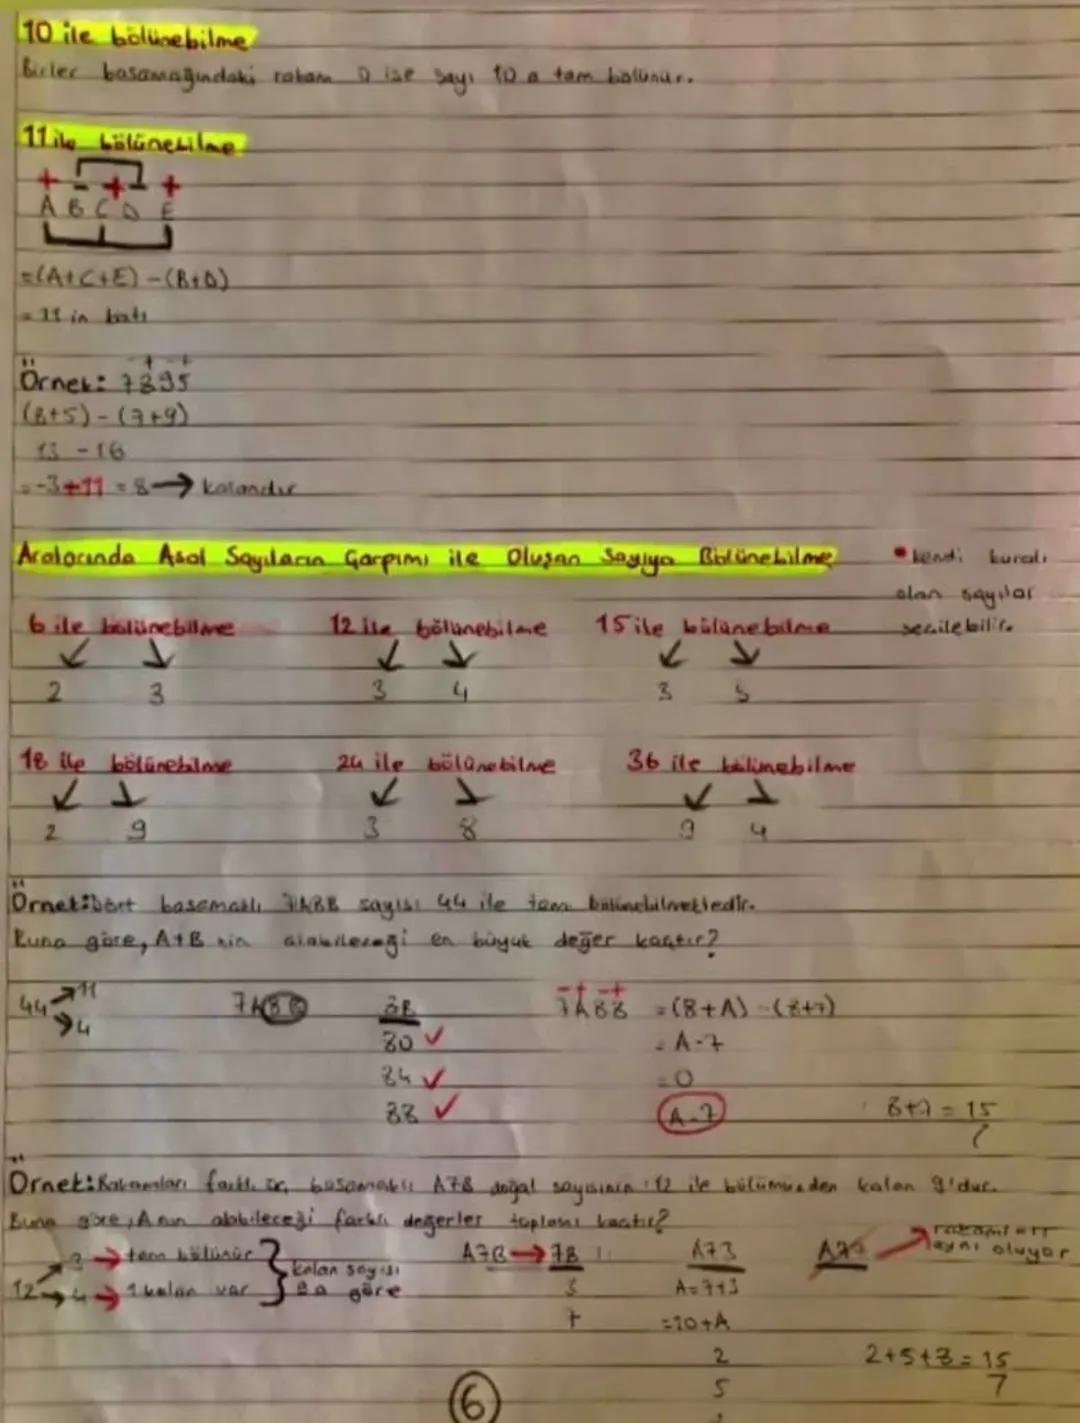 10 ile bölünebilme
Birler basamağındaki rakam 0 ise sayı 10 a tam bölünür.
11 ile bölünebilme
+ - + - +
A B C D E
=(A+C+E)-(B+D)
= 11 in katı
- + - +
Örnek: 7895
(8+5)-(7+9)
13 - 16
=-3+11 = 8 → kalandır
Aralarında Asal Sayıların Çarpımı ile Oluşan Sayıya Bölünebilme
• kendi kuralı
olan sayılar
seçilebilir.
6 ile bölünebilme 12 ile bölünebilme 15 ile bölünebilme
2 3 3 4 3 5
18 ile bölünebilme 24 ile bölünebilme 36 ile bölünebilme
2 9 3 8 9 4
Örnek: Dört basamaklı 7A8B sayısı 44 ile tam bölünebilmektedir.
Buna göre, A+B nin alabileceği en büyük değer kaçtır?
44 → 11
→ 4
7A8B
8B
80 ✓
84 ✓
88 ✓
- + - +
7A88 = (8+A) - (8+7)
= A-7
= 0
A=7
8+7 = 15
Örnek: Rakamları farklı üç basamaklı A7B doğal sayısının 12 ile bölümünden kalan 9'dur.
Buna göre, A nın alabileceği farklı değerler toplamı kaçtır?
12 → 3 → tam bölünür
→ 4 → 1 kalan var
kalan sayısı
9 a göre
A7B → 7B
3
7
A73
A+7+3
=10+A
2
5
A77 → rakamları
aynı oluyor
2+5+8=15
6